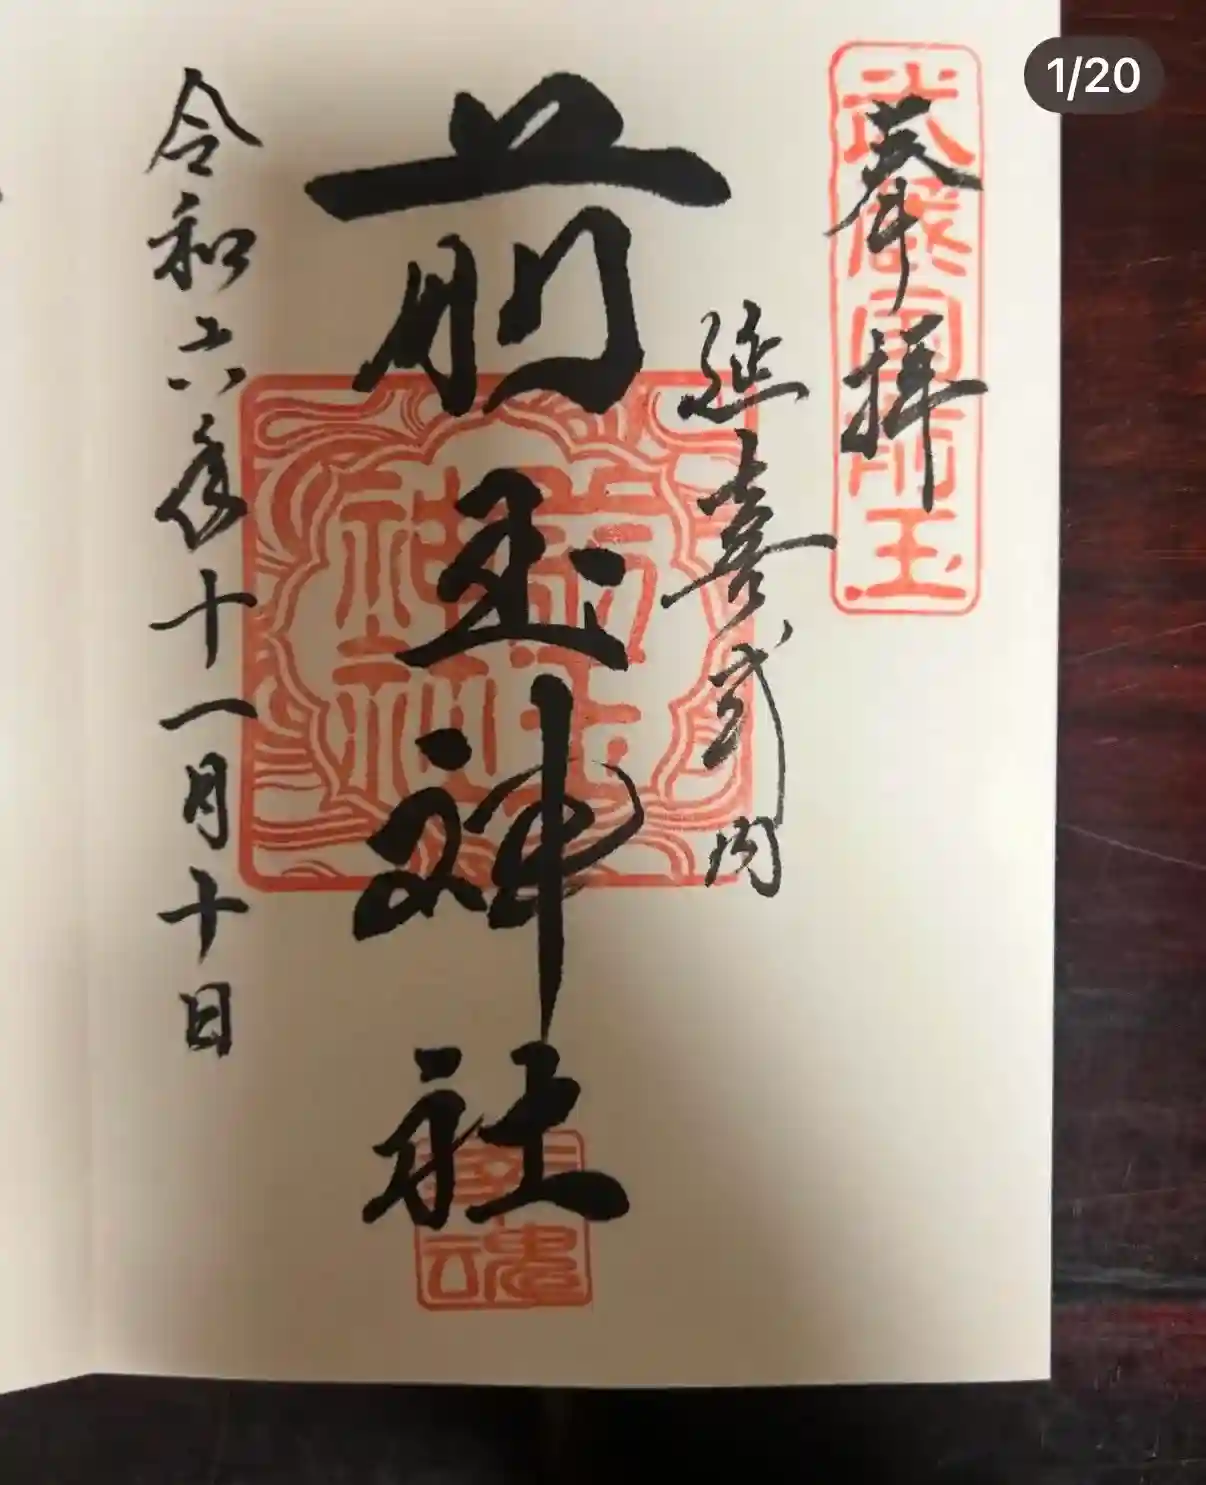 1/20
武蔵国前玉
奉拝
延喜式内
前玉神社
前玉
神社
幸魂
令和六年十一月十日